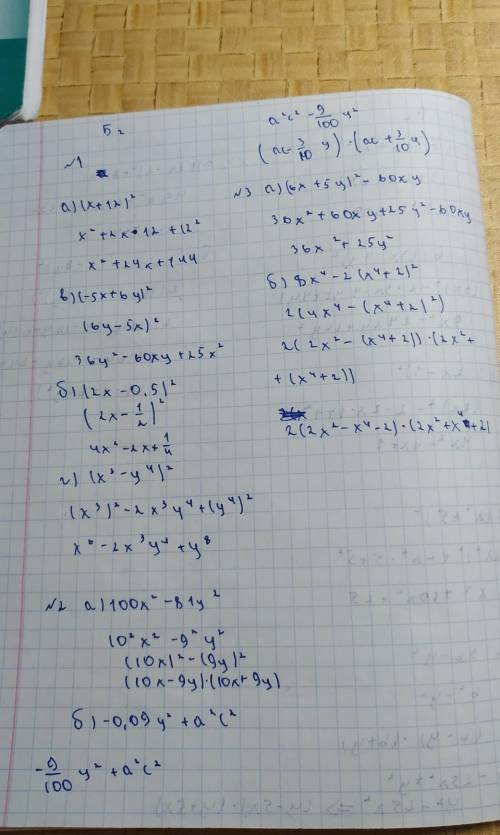 Б г
№1
а) (x+12)²
x²+2x·12+12²
x²+24x+144
в) (-5x+6y)²
(6y-5x)²
36y²-60xy+25x²
б) (2x-0,5)²
(2x-1/2)²
4x²-2x+1/4
г) (x³-y⁴)²
(x³)²-2x³y⁴+(y⁴)²
x⁶-2x³y⁴+y⁸
№2 а) 100x²-81y²
10²x²-9²y²
(10x)²-(9y)²
(10x-9y)·(10x+9y)
б) -0,09y²+a²c²
-9/100 y²+a²c²
a²c²-9/100 y²
(ac-3/10 y)·(ac+3/10 y)
№3 а) (6x+5y)²-60xy
36x²+60xy+25y²-60xy
36x²+25y²
б) 8x⁴-2(x⁴+2)²
2(4x⁴-(x⁴+2)²)
2(2x²-(x⁴+2))·(2x²+
+(x⁴+2))
2(2x²-x⁴-2)·(2x²+x⁴+2)